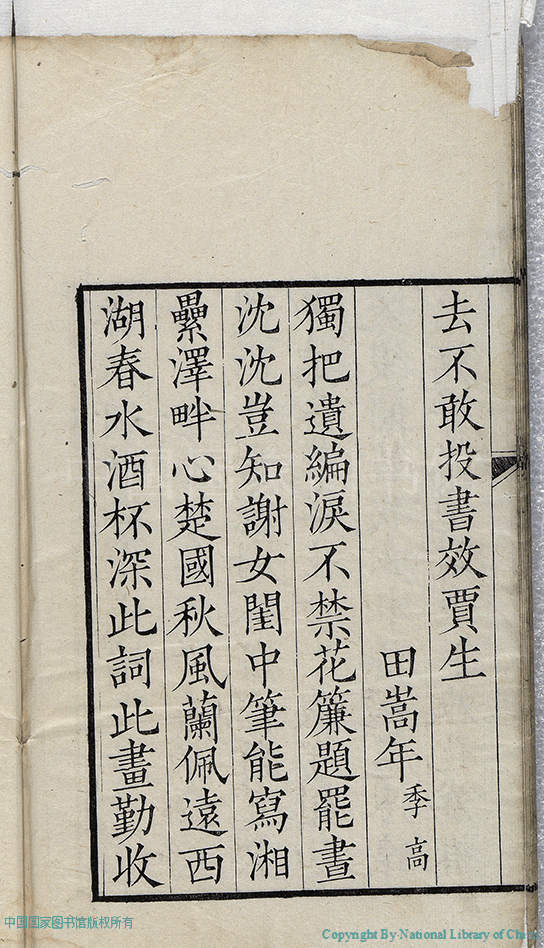 去不敢投書效賈生
田嵩年季高
獨把遺編淚不禁花簾題罷晝
沈沈豈知謝女閨中筆能寫湘
纍澤畔心楚國秋風蘭佩遠西
湖春水酒杯深此詞此畫勤收
中国国家图书馆版权所有
Copyright By National Library of China